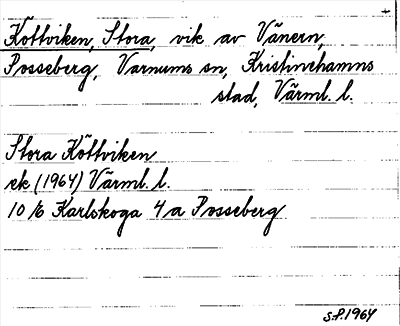 Köttviken, Stora, vik av Vänern,
Posseberg, Varnums sn, Kristinehamns
stad, Värml. l.
Stora Köttviken
ek (1964) Värml. l.
10 b Karlskoga 4 a Posseberg
S.P. 1964